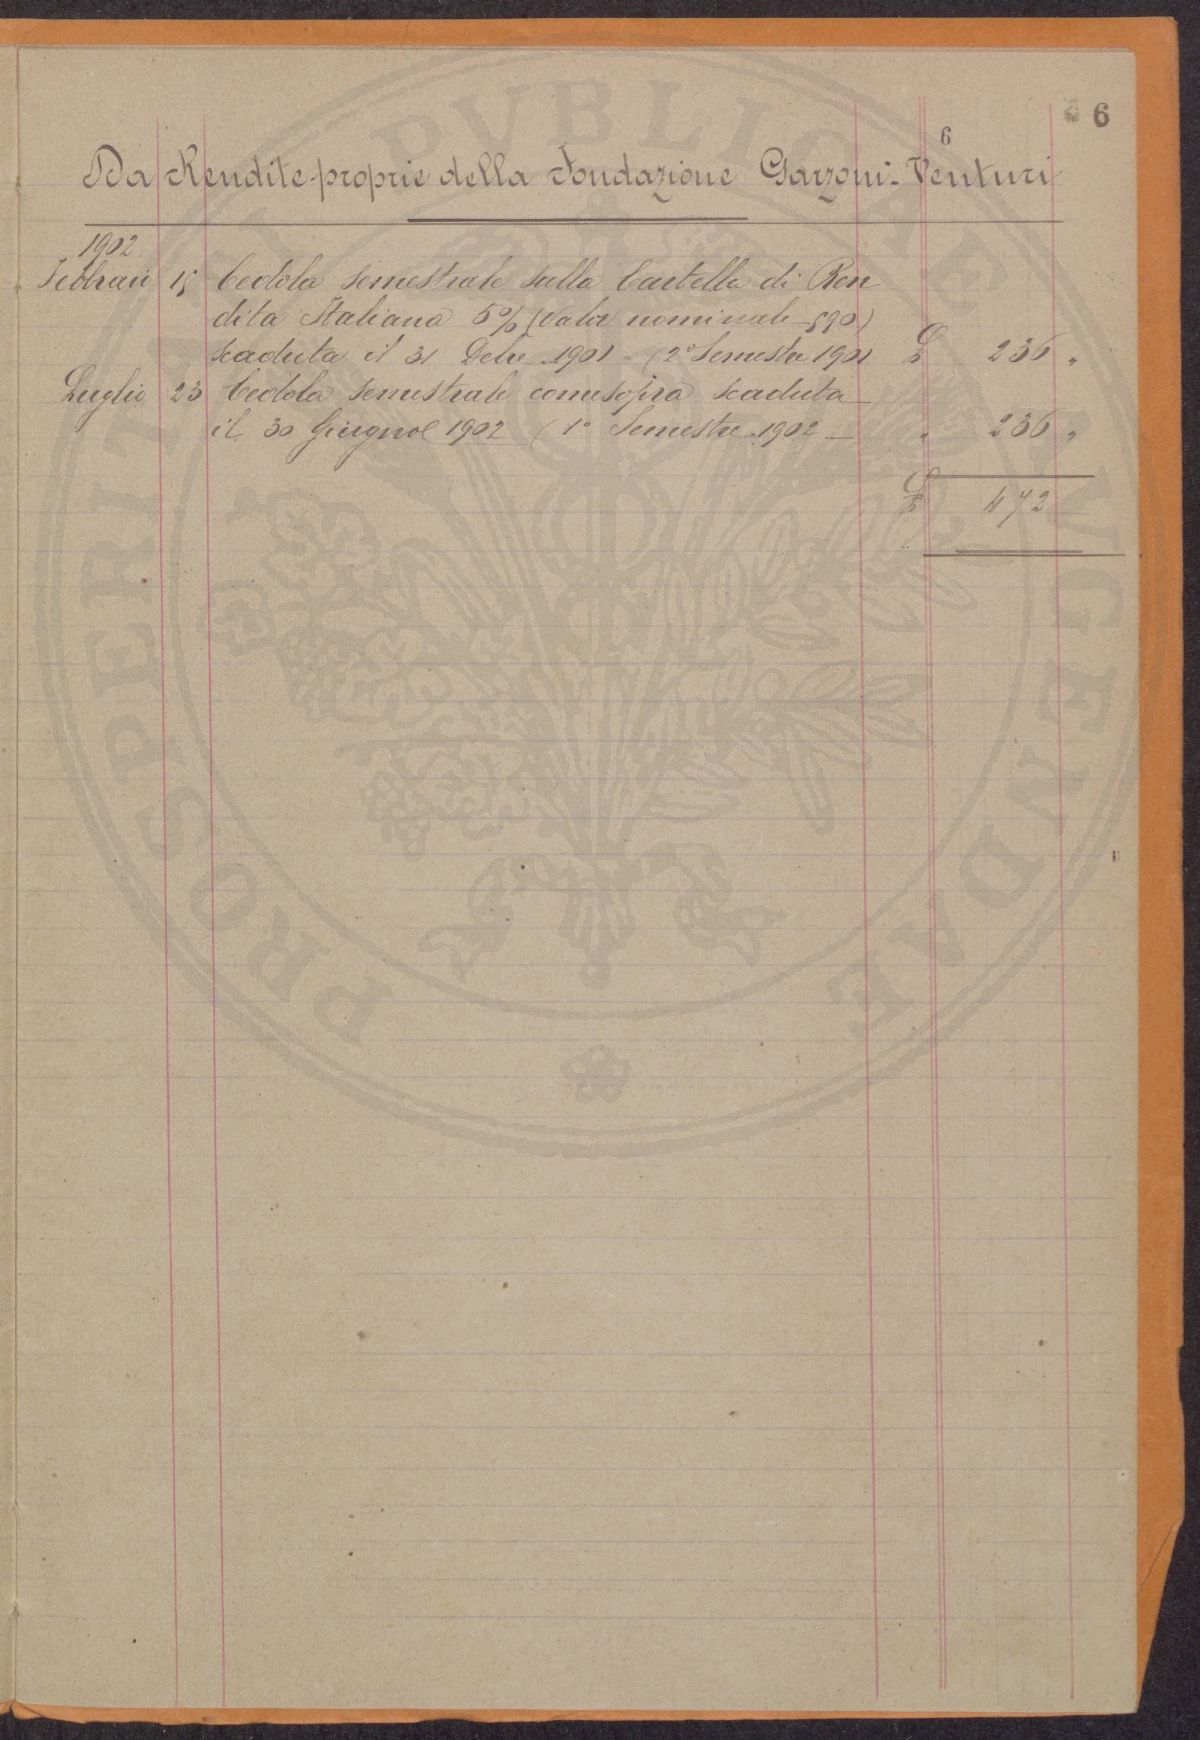 6
6
Da Rendite proprie della Fondazione Garzoni-Venturi
1902
Febbraio 15 Cedola semestrale sulla Cartella di Ren
dita Italiana 5% (Valor nominale 590)
scaduta il 31 Dcbre 1901 - (2° Semestre 1901 £ 236 "
Luglio 23 Cedola semestrale comesopra scaduta
il 30 Giugno 1902 (1° Semestre 1902 - " 236 "
£ 472
PROSPERITATI PVBLICAE AVGENDAE